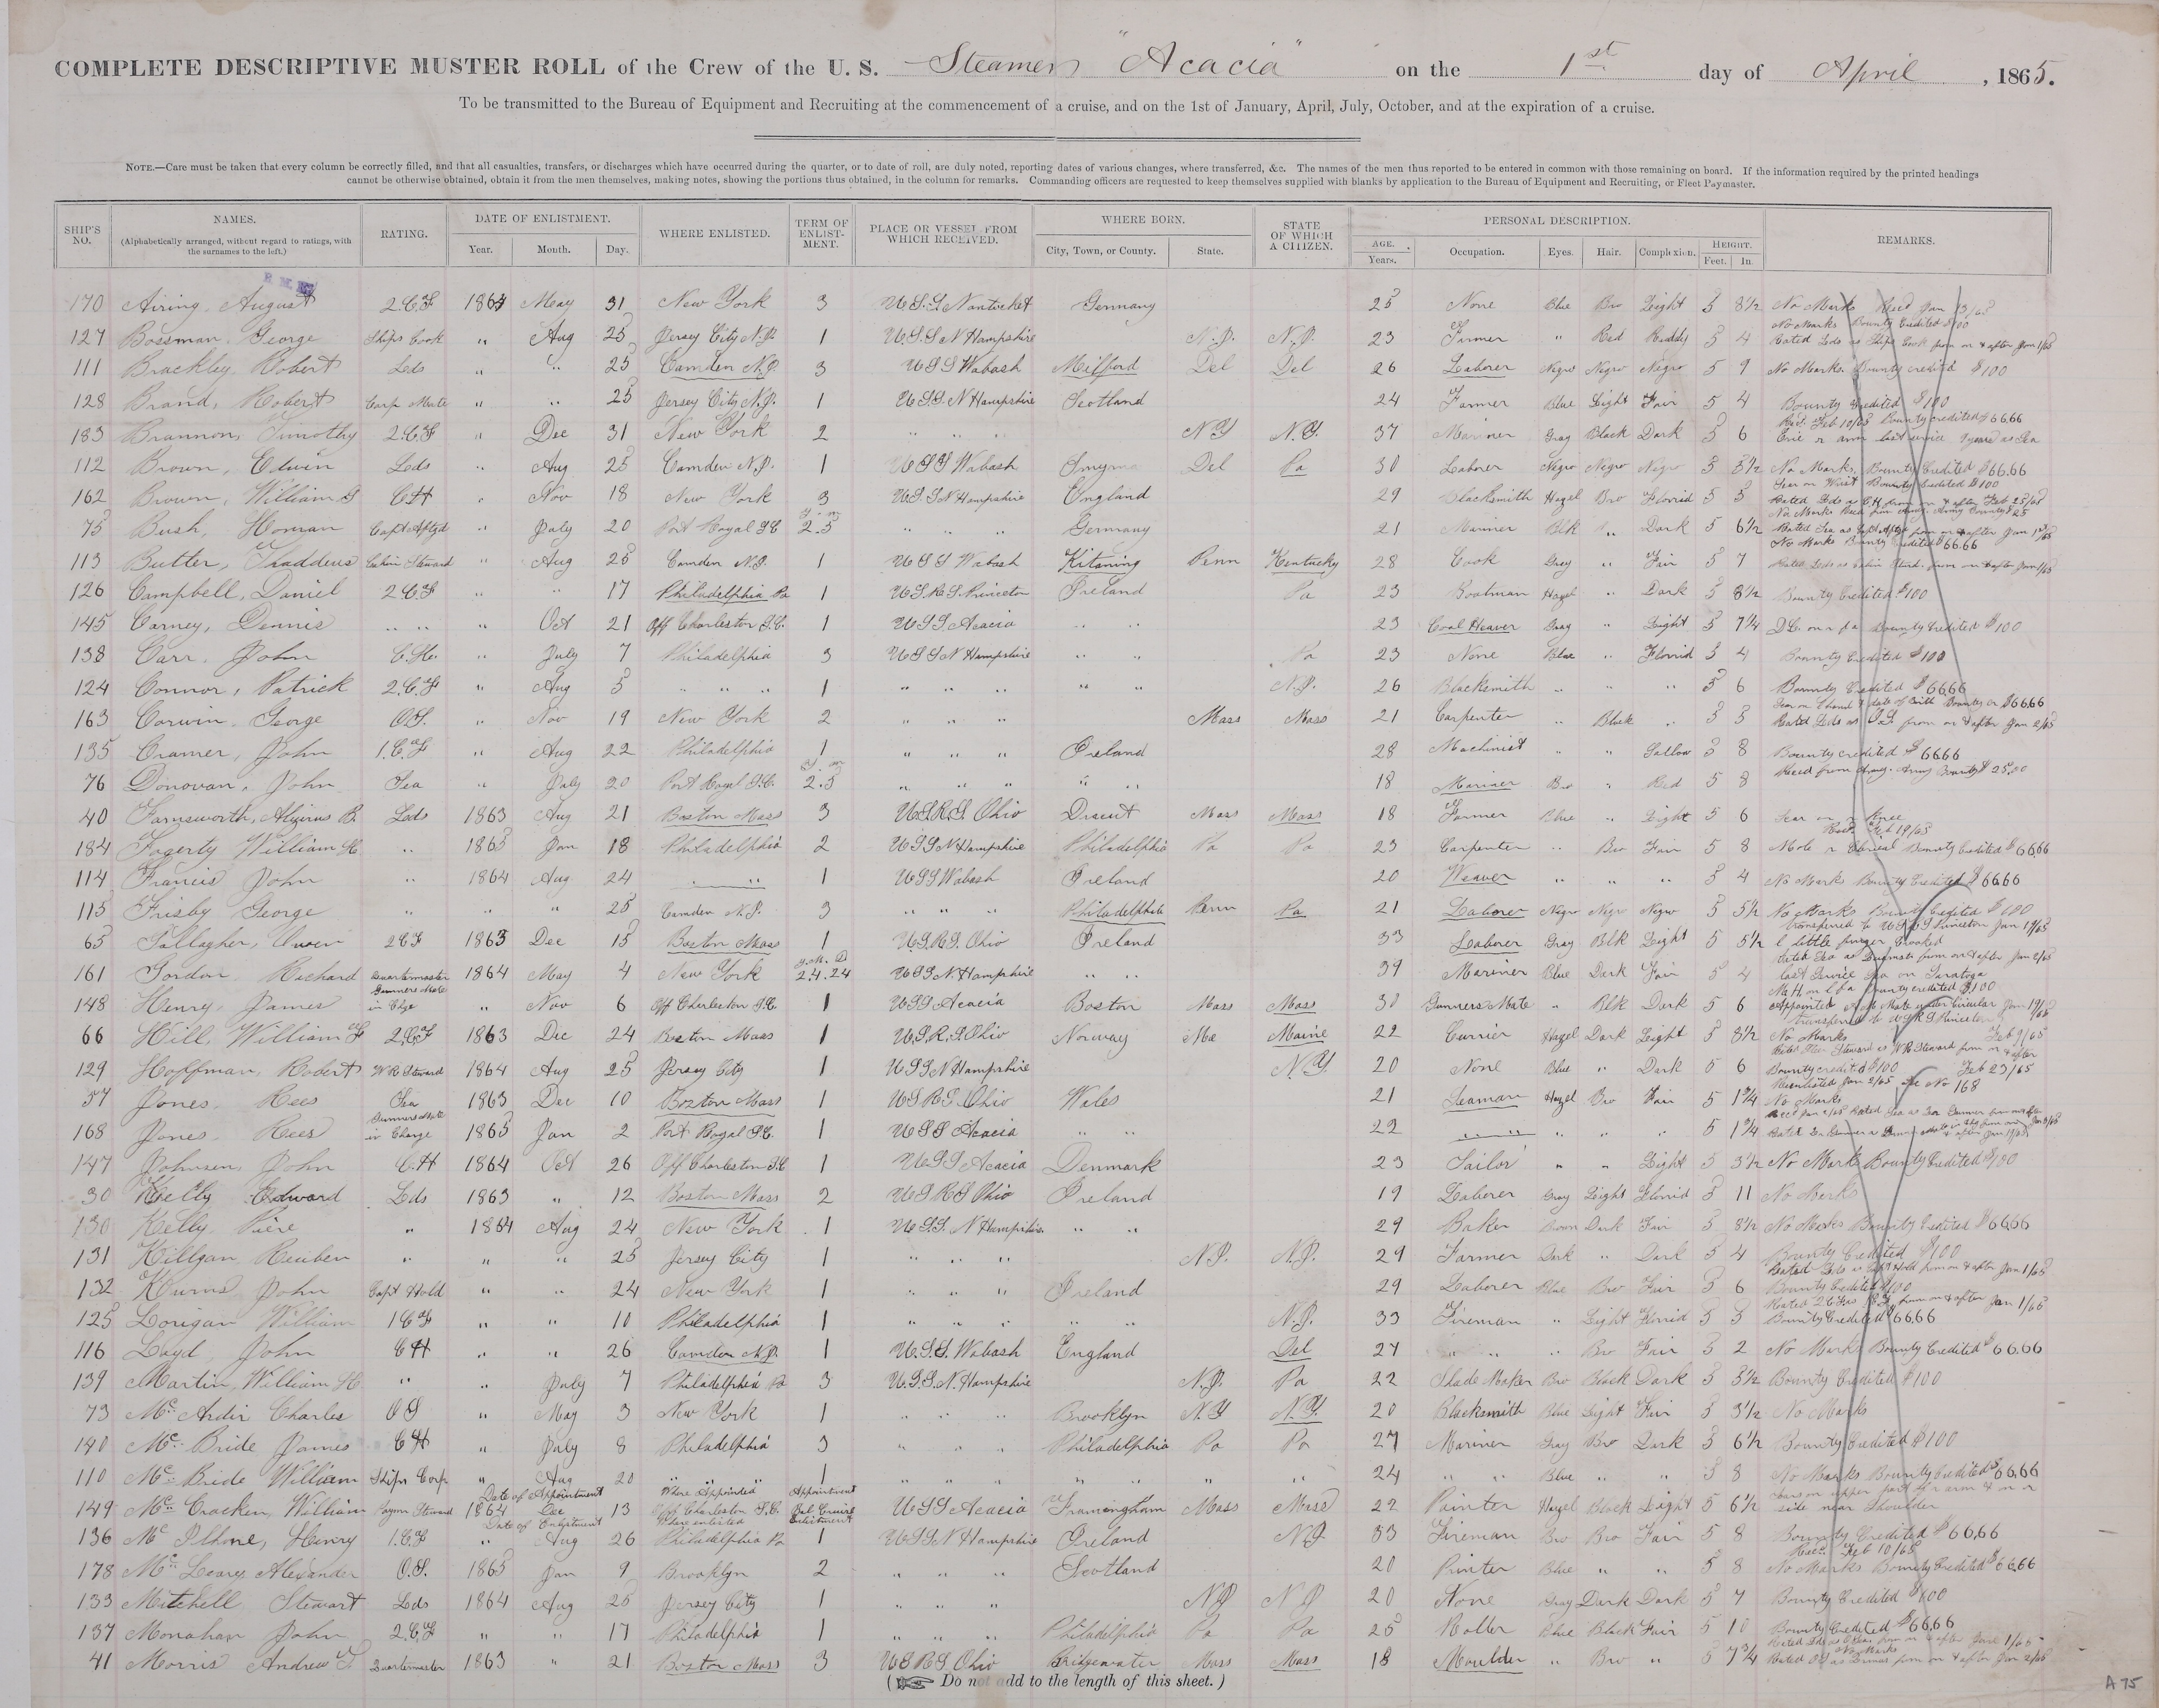 COMPLETE DESCRIPTIVE MUSTER ROLL of the Crew of the U. S. Steamer "Acacia" on the 1st day of April, 1865.
To be transmitted to the Bureau of Equipment and Recruiting at the commencement of a cruise, and on the 1st of January, April, July, October, and at the expiration of a cruise.
NOTE.—Care must be taken that every column be correctly filled, and that all casualties, transfers, or discharges which have occurred during the quarter, or to date of roll, are duly noted, reporting dates of various changes, where transferred, &c. The names of the men thus reported to be entered in common with those remaining on board. If the information required by the printed headings
cannot be otherwise obtained, obtain it from the men themselves, making notes, showing the portions thus obtained, in the column for remarks. Commanding officers are requested to keep themselves supplied with blanks by application to the Bureau of Equipment and Recruiting, or Fleet Paymaster.
SHIP'S NO. NAMES. (Alphabetically arranged, without regard to ratings, with the surnames to the left.) RATING. DATE OF ENLISTMENT. Year. Month. Day. WHERE ENLISTED. TERM OF ENLISTMENT. PLACE OR VESSEL FROM WHICH RECEIVED. WHERE BORN. City, Town, or County. State. STATE OF WHICH A CITIZEN. PERSONAL DESCRIPTION. AGE. Years. Occupation. Eyes. Hair. Complexion. HEIGHT. Feet. In. REMARKS.
170 Airing, August 2.C.F 1864 May 31 New York 3 U.S.S. Nantucket Germany 25 None Blue Bro Light 5 8½ No Marks Recd Jan 13/65
127 Bossman, George Ships Cook " Aug 25 Jersey City N.J. 1 U.S.S N Hampshire N.J. N.J. 23 Farmer " Red Ruddy 5 4 No Marks Bounty Credited $100 Rated Lds as Ships Cook from on & after Jan 1/65
111 Brackley, Robert Lds " " 25 Camden N.J. 3 U.S.S Wabash Milford Del Del 26 Laborer Negro Negro Negro 5 9 No Marks. Bounty credited $100
128 Brand, Robert Carp Mate " " 25 Jersey City N.J. 1 U.S.S. N Hampshire Scotland 24 Farmer Blue Light Fair 5 4 Bounty Credited $100
183 Brannon, Timothy 2.C.F " Dec 31 New York 2 " " " N.Y N.Y. 37 Mariner Gray Black Dark 5 6 Recd. Feb 10/65 Bounty credited $66.66
112 Brown, Edwin Lds " Aug 25 Camden N.J. 1 U.S.S Wabash Smyrna Del Pa 30 Laborer Negro Negro Negro 5 5½ No Marks. Bounty Credited $66.66
162 Brown, William G C.H " Nov 18 New York 3 U.S.S N Hampshire England 29 Blacksmith Hazel Bro Florrid 5 5 Scar on Wrist Bounty Credited $100 Rated Lds as C.H. from on & after Feb 23/65
75 Bush, Homan Capt Aftgd " July 20 Port Royal S.C. 2.5 " " Germany 21 Mariner Blk " Dark 5 6½ No Marks Recd from Army. Army Bounty $25 Rated Sea as Capt Aftgd from on & after Jan 1st/65
113 Butler, Thaddeus Cabin Steward " Aug 25 Camden N.J. 1 U.S.S Wabash Kitaning Penn Kentucky 28 Cook Grey " Fair 5 7 No Marks Bounty Credited $66.66 Rated Lds as Cabin Stwd. from on & after Jan 1/65
126 Campbell, Daniel 2.C.F " " 17 Philadelphia Pa 1 U.S.R.S. Princeton Ireland Pa 23 Boatman Hazel " Dark 5 8½ Bounty Credited $100
145 Carney, Dennis " " " Oct 21 Off Charleston S.C. 1 U.S.S Acacia " " 23 Coal Heaver Gray " Light 5 7¼ Bounty Credited $100
138 Carr, John C.H. " July 7 Philadelphia 3 U.S.S N Hampshire " " Pa 23 None Blue " Florrid 5 4 Bounty Credited $100
124 Connor, Patrick 2.C.F " Aug 5 " " " 1 " " " " " N.J. 26 Blacksmith " " " 5 6 Bounty Credited $66.66
163 Corwin, George O.S. " Nov 19 New York 2 " " " Mass Mass 21 Carpenter " Black " 5 5 Rated Lds as O.S from on & after Jan 2/65
135 Cramer, John 1.C.F " Aug 22 Philadelphia 1 " " " Ireland 28 Machinist " " Sallow 5 8 Bounty credited $66.66
76 Donovan, John Sea " July 20 Port Royal S.C. 2.5 " " " " " 18 Mariner Bro " Red 5 8 Recd from Army. Army Bounty $25.00
40 Farnsworth, B. Lds 1863 Aug 21 Boston Mass 3 U.S.R.S. Ohio Dracut Mass Mass 18 Farmer Blue " Light 5 6 Scar on r Knee
184 Fogerty William H " 1865 Jan 18 Philadelphia 2 U.S.S N Hampshire Philadelphia Pa Pa 23 Carpenter " Bro Fair 5 8 Recd. Feb 19/65 Bounty Credited $66.66
114 Francis John " 1864 Aug 24 " " 1 U.S.S Wabash Ireland 20 Weaver " " " 5 4 No Marks Bounty Credited $66.66
115 Frisby George " " " 25 Camden N.J. 3 " " " Philadelphia Penn Pa 21 Laborer Negro Negro Negro 5 5½ No Marks Bounty Credited $100
65 Gallagher, Owen 2.C.F 1863 Dec 15 Boston Mass 1 U.S.R.S. Ohio Ireland 33 Laborer Gray Blk Light 5 5½ transferred to U.S.R.S Princeton Jan 19/65 l little finger crooked
161 Gordon, Richard Quartermaster 1864 May 4 New York 2.4.24 U.S.S N. Hampshire " " 39 Mariner Blue Dark Fair 5 4 last Service Sea on Saratoga
148 Henry, James Gunners Mate in Chge " Nov 6 Off Charleston S.C. 1 U.S.S Acacia Boston Mass Mass 30 Gunners Mate " Blk Dark 5 6 Bounty credited $100
66 Hill, William F 2.C.F 1863 Dec 24 Boston Mass 1 U.S.R.S. Ohio Norway Me Maine 22 Currier Hazel Dark Light 5 8½ transferred to U.S.R.S Princeton Feb 9/65 No Marks
129 Hoffman, Robert W.R. Steward 1864 Aug 25 Jersey City 1 U.S.S N Hampshire N.Y. 20 None Blue " Dark 5 6 Bounty credited $100 Feb 23/65
37 Jones, Rees Sea 1863 Dec 10 Boston Mass 1 U.S.R.S. Ohio Wales 21 Seaman Hazel Bro Fair 5 1¾ Reenlisted Jan 2/65 See No 168 No Marks
168 Jones, Rees Gunners Mate in Charge 1865 Jan 2 Port Royal S.C. 1 U.S.S Acacia " " 22 " " " " " 5 1¾
147 Johnsen, John C.H 1864 Oct 26 Off Charleston S.C 1 U.S.S Acacia Denmark 23 Sailor " " Light 5 3½ No Marks Bounty Credited $100
30 Kelly, Edward Lds 1863 " 12 Boston Mass 2 U.S.R.S Ohio Ireland 19 Laborer Gray Light Florrid 5 11 No Marks
130 Kelly, Piere " 1864 Aug 24 New York 1 U.S.S. N Hampshire " " 29 Baker Brown Dark Fair 5 8½ No Marks Bounty Credited $66.66
131 Killgan Reuben " " " 25 Jersey City 1 " " " N.J. N.J. 29 Farmer Dark " Dark 5 4 Bounty Credited $100
132 Kurns John Capt Hold " " 24 New York 1 " " " Ireland 29 Laborer Blue Bro Fair 5 6 Rated Lds as Capt Hold from on & after Jan 1/65 Bounty Credited $100
125 Lorigan William 1 C.F " " 10 Philadelphia 1 " " " " " N.J. 33 Fireman " Light Florrid 5 5 Bounty Credited $66.66
116 Loyd, John C.H " " 26 Camden N.J. 1 U.S.S. Wabash England Del 27 " " " Bro Fair 5 2 No Marks Bounty Credited $66.66
139 Martin, William H " " July 7 Philadelphia Pa 3 U.S.S. N. Hampshire N.J. Pa 22 Shade Maker Bro Black Dark 5 5½ Bounty Credited $100
73 Mc Ardir Charles O.S " May 3 New York 1 " " " Brooklyn N.Y N.Y. 20 Blacksmith Blue Light Fair 5 3½ No Marks
140 Mc Bride James C.H " July 8 Philadelphia 3 " " " Philadelphia Pa Pa 27 Mariner Gray Bro Dark 5 6½ Bounty Credited $100
110 Mc Bride William Ships Corp " Aug 20 " " " 1 " " " " " " " 24 " " Blue " " 5 8 No Marks Bounty Credited $66.66
149 Mc Cracken, William Paym Steward Date of Appointment 1864 Dec 13 Where Appointed Off Charleston S.C. Appointment U.S.S Acacia Framingham Mass Mass 22 Painter Hazel Black Light 5 6½ side near Shoulder
136 Mc Ilhone, Henry 1.C.F Date of Enlistment " Aug 26 Where enlisted Philadelphia Pa Enlistment 1 U.S.S N Hampshire Ireland N.J 33 Fireman Bro Bro Fair 5 8 Bounty Credited $66.66
178 Mc Leary Alexander O.S. 1865 Jan 9 Brooklyn 2 " " " Scotland 20 Printer Blue " " 5 8 Recd. Feb 10/65 No Marks Bounty Credited $66.66
133 Mitchell Stewart Lds 1864 Aug 25 Jersey City 1 " " " N J N J 20 None Gray Dark Dark 5 7 Bounty Credited $100
137 Monahan John 2.C.F " " 17 Philadelphia 1 " " " Philadelphia Pa Pa 25 Roller Blue Black Fair 5 10 Bounty Credited $66.66
41 Morris Andrew Quartermaster 1863 " 21 Boston Mass 3 U.S.R.S. Ohio Bridgewater Mass Mass 18 Moulder " Bro " 5 7¾ No Marks
( Do not add to the length of this sheet. )
A 75